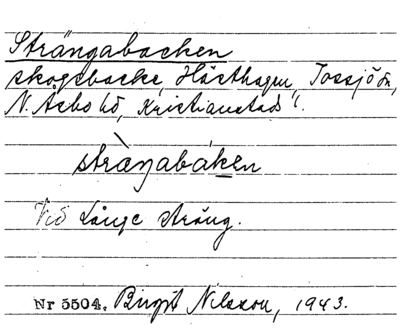 Strängabacken
skogsbacke, Hästhagen, Tossjö sn,
N. Åsbo hd, Kristianstad l.
stràŋabáken
Vid Långe sträng.
Nr 5504. Birgit Nilsson, 1943.